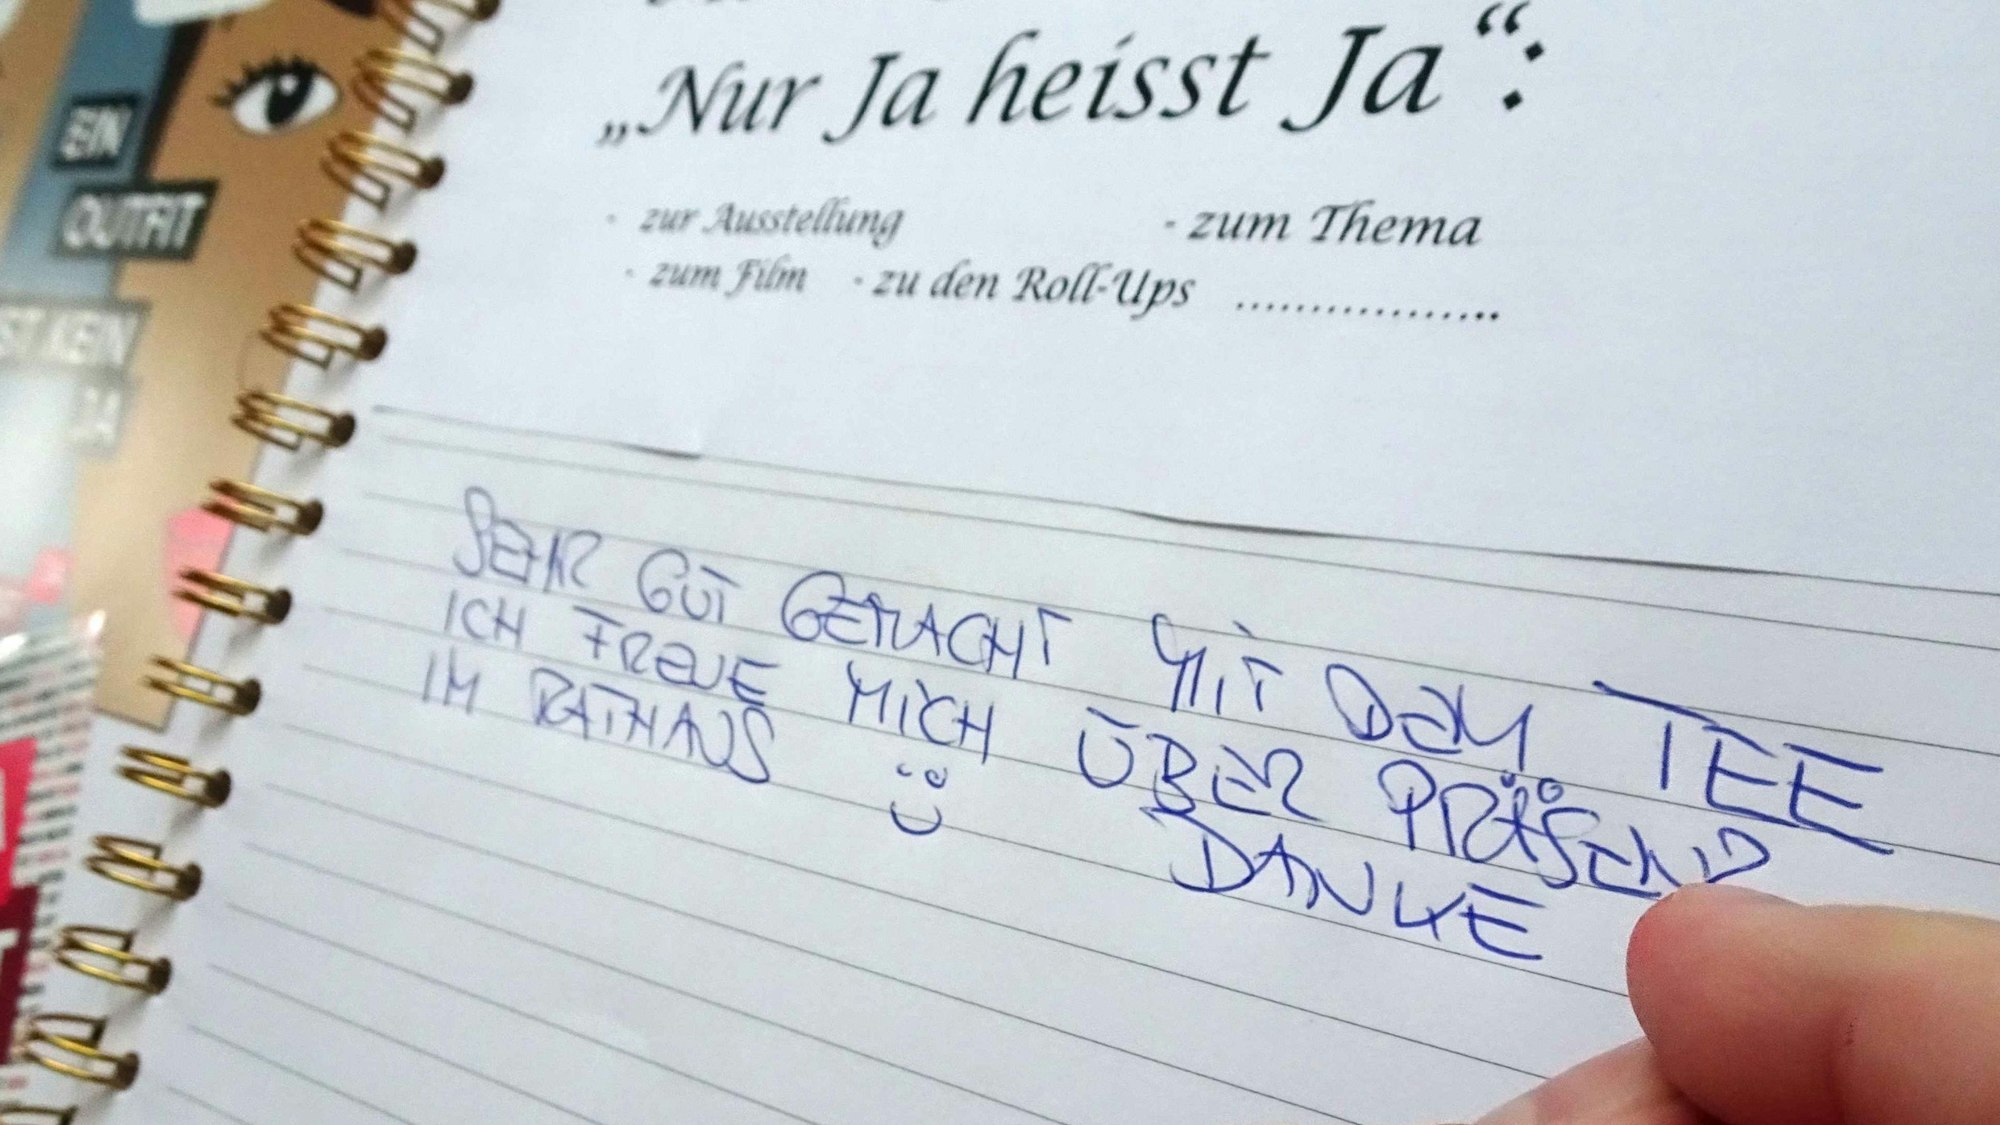 „Nur Ja heisst Ja“:
- zur Ausstellung - zum Thema
- zum Film - zu den Roll-Ups ..................
SEHR GUT GEMACHT MIT DEM TEE
ICH FREUE MICH ÜBER PRÄSEND
IM RATHAUS DANKE
EIN
OUTFIT
IST KEIN
JA